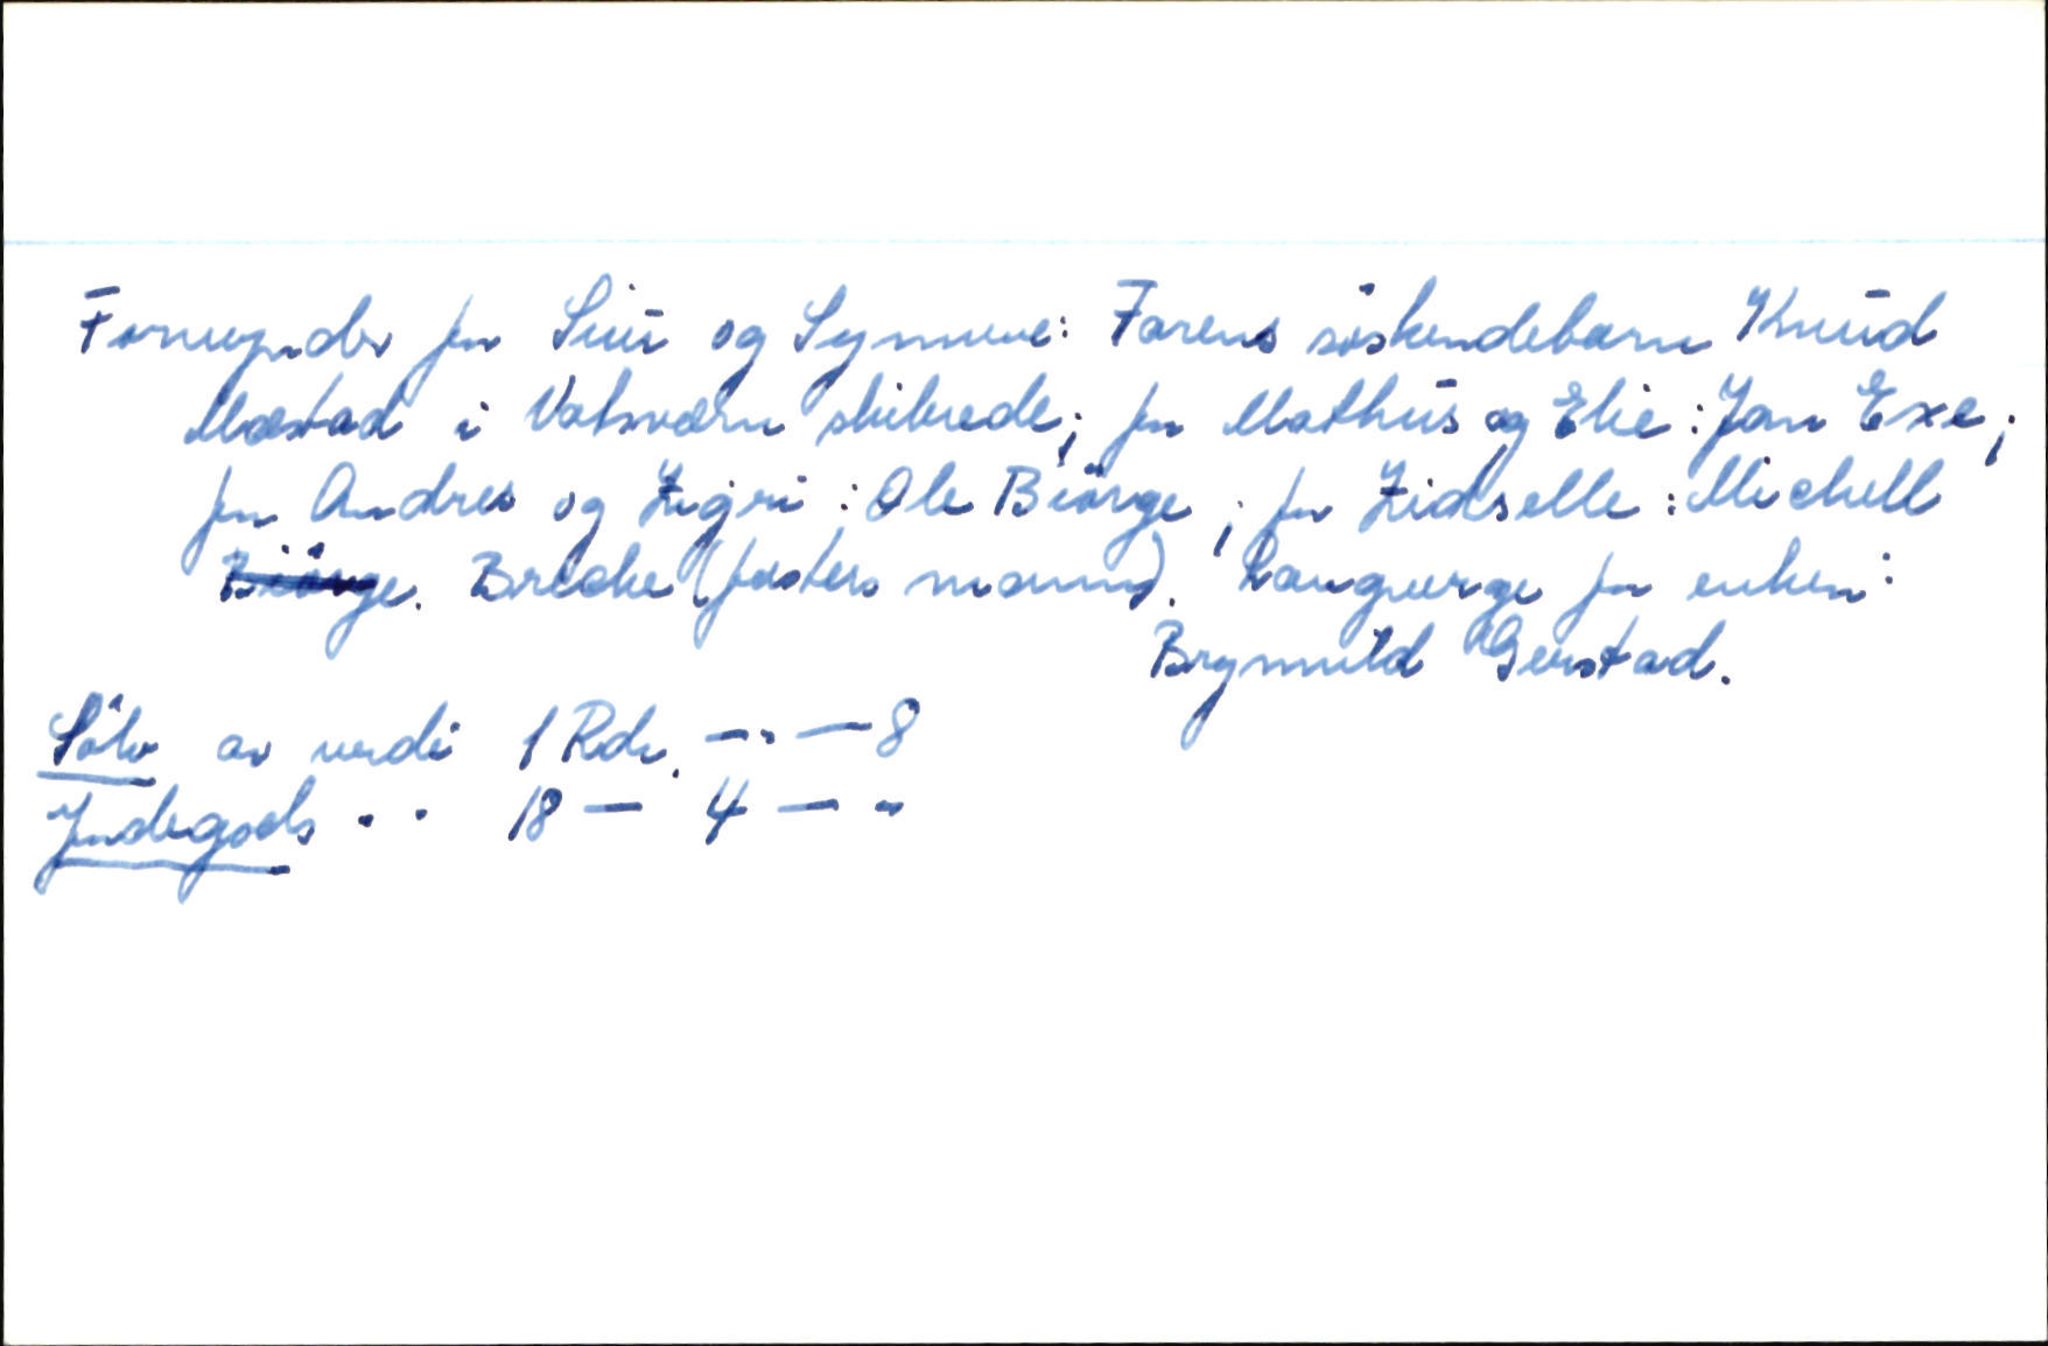 Formynder for Siur og Synneve: Farens söskendebarn Knud
Mæstad i Vatsværn skibrede; for Mathus og Elie: Jan Exe;
for Andres og Zigri: Ole Biörge; for Zidselle: Michell
Biörge. Brecke (fasters mann). Laugverge for enken:
Brynnild Gerstad.
Sölv av verdi 1 Rdr. — " — 8
Jndegods " " 18 — 4 — "